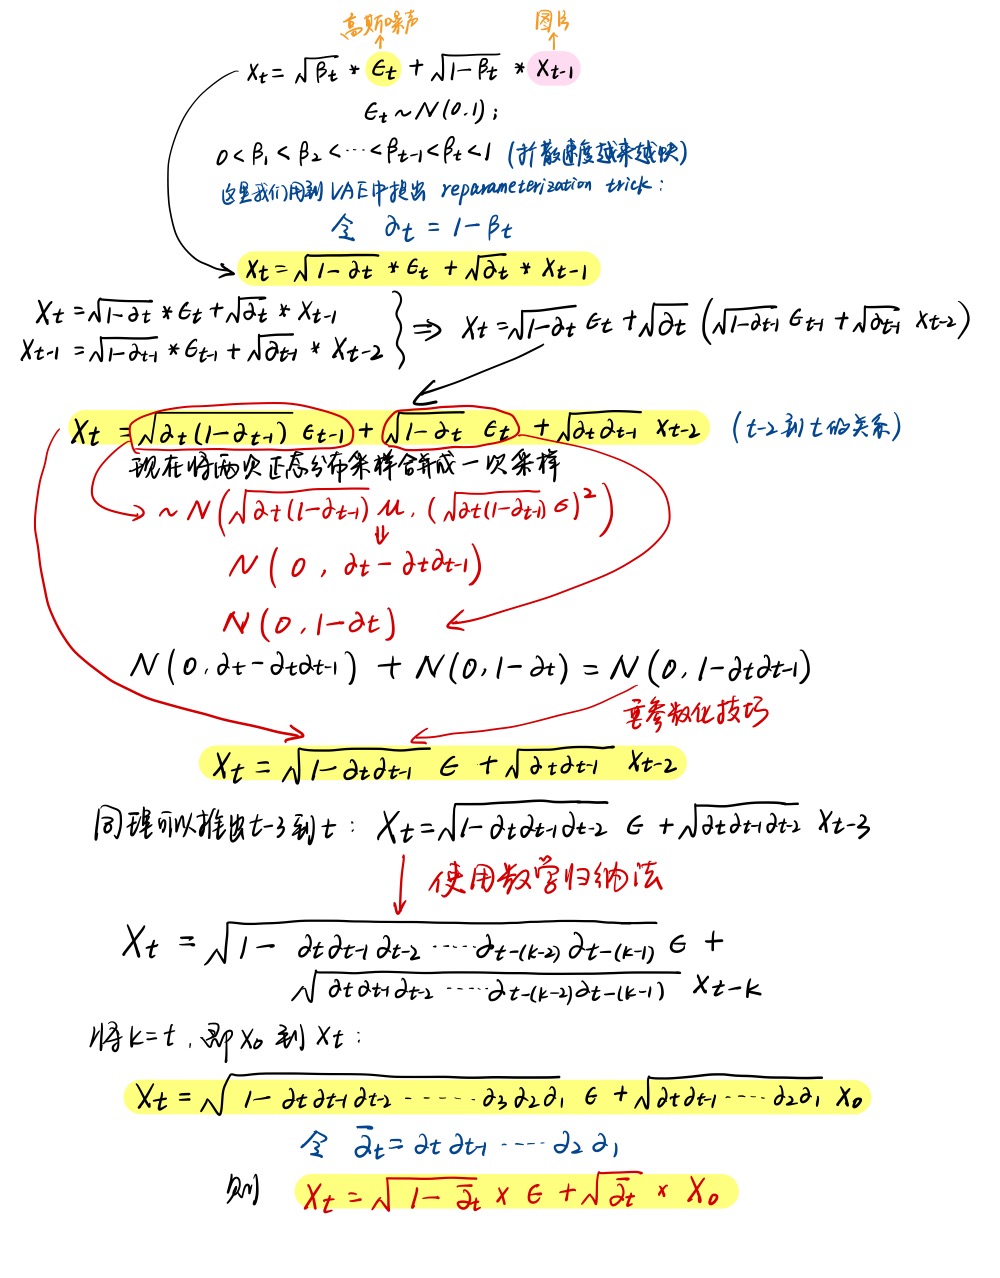 高斯噪声 图片
X_t = √β_t * ε_t + √(1-β_t) * X_{t-1}
ε_t ~ N(0.1);
0 < β_1 < β_2 < ··· < β_{t-1} < β_t < 1 (扩散速度越来越快)
这里我们用到VAE中提出 reparameterization trick:
令 ∂_t = 1 - β_t
X_t = √(1-∂_t) * ε_t + √∂_t * X_{t-1}
X_t = √(1-∂_t) * ε_t + √∂_t * X_{t-1}
X_{t-1} = √(1-∂_{t-1}) * ε_{t-1} + √∂_{t-1} * X_{t-2}
} ⇒ X_t = √(1-∂_t) ε_t + √∂_t (√(1-∂_{t-1}) ε_{t-1} + √∂_{t-1} X_{t-2})
X_t = √(∂_t(1-∂_{t-1})) ε_{t-1} + √(1-∂_t) ε_t + √(∂_t∂_{t-1}) X_{t-2} (t-2到t的关系)
现在将两次正态分布采样合并成一次采样
~ N(√(∂_t(1-∂_{t-1})) μ, (√(∂_t(1-∂_{t-1})) σ)²)
⇓
N(0, ∂_t - ∂_t∂_{t-1})
N(0, 1-∂_t)
N(0, ∂_t - ∂_t∂_{t-1}) + N(0, 1-∂_t) = N(0, 1-∂_t∂_{t-1})
重参数化技巧
X_t = √(1-∂_t∂_{t-1}) ε + √(∂_t∂_{t-1}) X_{t-2}
同理可以推出t-3到t: X_t = √(1-∂_t∂_{t-1}∂_{t-2}) ε + √(∂_t∂_{t-1}∂_{t-2}) X_{t-3}
使用数学归纳法
X_t = √(1 - ∂_t∂_{t-1}∂_{t-2} ····· ∂_{t-(k-2)}∂_{t-(k-1)}) ε +
√(∂_t∂_{t-1}∂_{t-2} ····· ∂_{t-(k-2)}∂_{t-(k-1)}) X_{t-k}
将k=t, 即X_0到X_t:
X_t = √(1 - ∂_t∂_{t-1}∂_{t-2} ······ ∂_3∂_2∂_1) ε + √(∂_t∂_{t-1} ···· ∂_2∂_1) X_0
令 ∂̄_t = ∂_t∂_{t-1} ····· ∂_2∂_1
则 X_t = √(1-∂̄_t) × ε + √∂̄_t × X_0